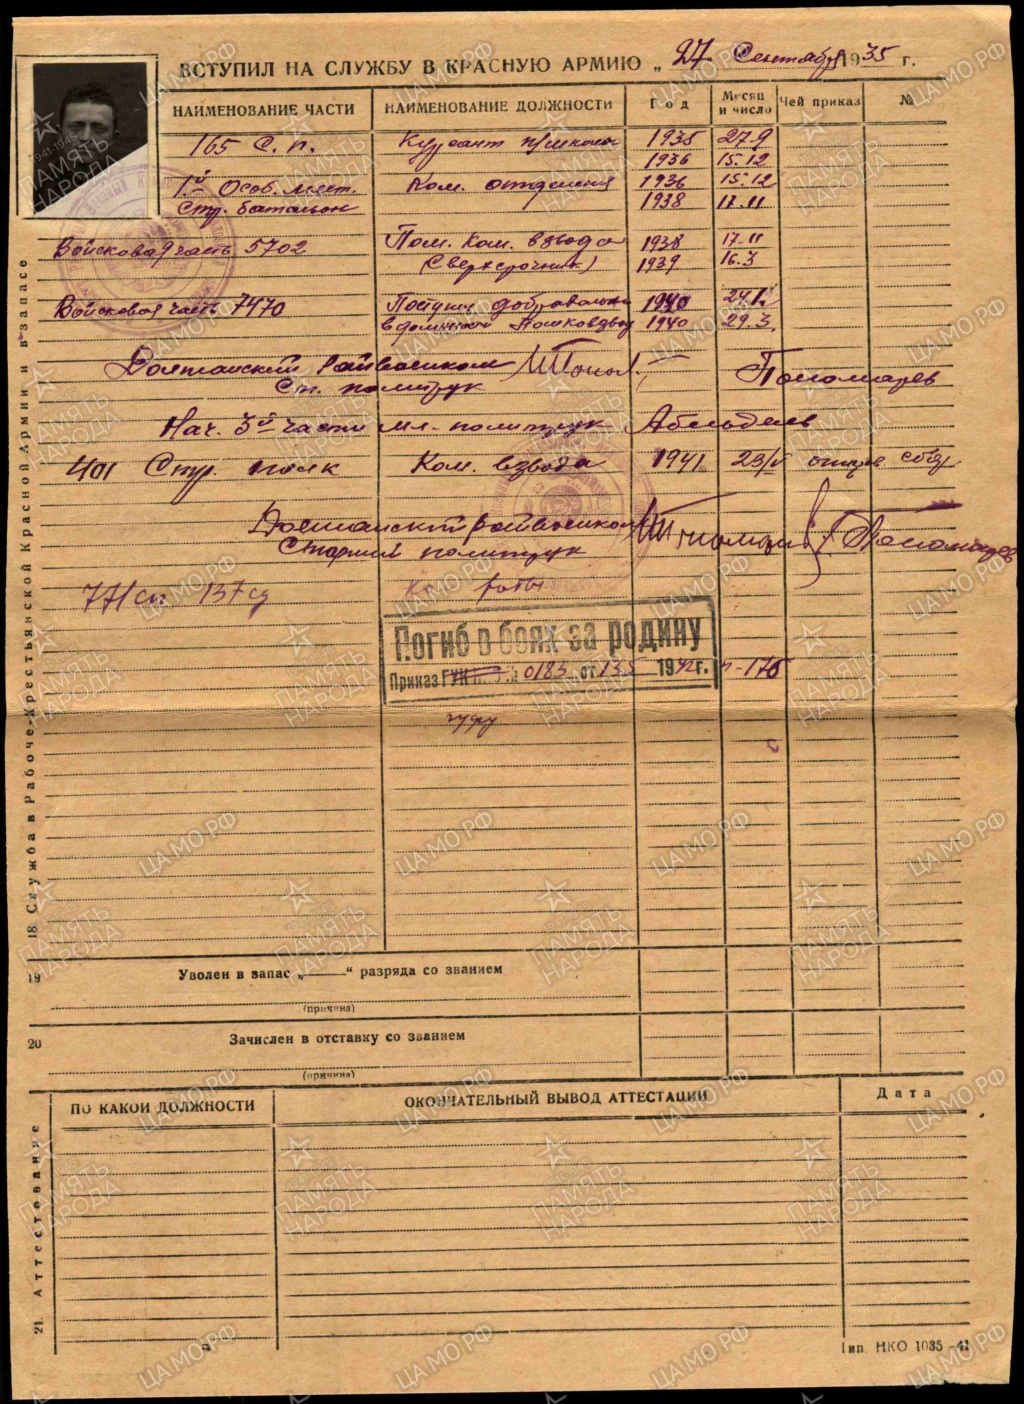 ВСТУПИЛ НА СЛУЖБУ В КРАСНУЮ АРМИЮ „ 27 Сентября 1935 г.
НАИМЕНОВАНИЕ ЧАСТИ НАИМЕНОВАНИЕ ДОЛЖНОСТИ Год Месяц и число Чей приказ №
165 С. п. Курсант п/школы 1935 27.9
1936 15.12
1й Особ. мест. Ком. отделения 1936 15.12
Стр. батальон 1938 17.11
Войсковая часть 5702 Пом. Ком. взвода 1938 17.11
(Сверхсрочник) 1939 16.3
Войсковая часть 7470 Поступил добровольно 1940 24.1.
в должности Помкомвзвод 1940 29.3.
райвоенком Пономарев
Ст. политрук
Нач. 3й части мл. политрук Абельдеев
401 Стр. полк Ком. взвода 1941 23/VI
райвоенком Пономарев
Старший политрук
771 сп 137 сд Ком роты
Погиб в боях за родину
Приказ ГУК Н.О. № 0183 от 13.5 1942 г. п-176
гуфу
18. Служба в Рабоче-Крестьянской Красной Армии и в запасе
19 Уволен в запас „ “ разряда со званием
(причина)
20 Зачислен в отставку со званием
(причина)
21. Аттестование
ПО КАКОЙ ДОЛЖНОСТИ ОКОНЧАТЕЛЬНЫЙ ВЫВОД АТТЕСТАЦИИ Дата
Тип. НКО 1035-41
ЦАМО РФ
1941-1945
ПАМЯТЬ НАРОДА